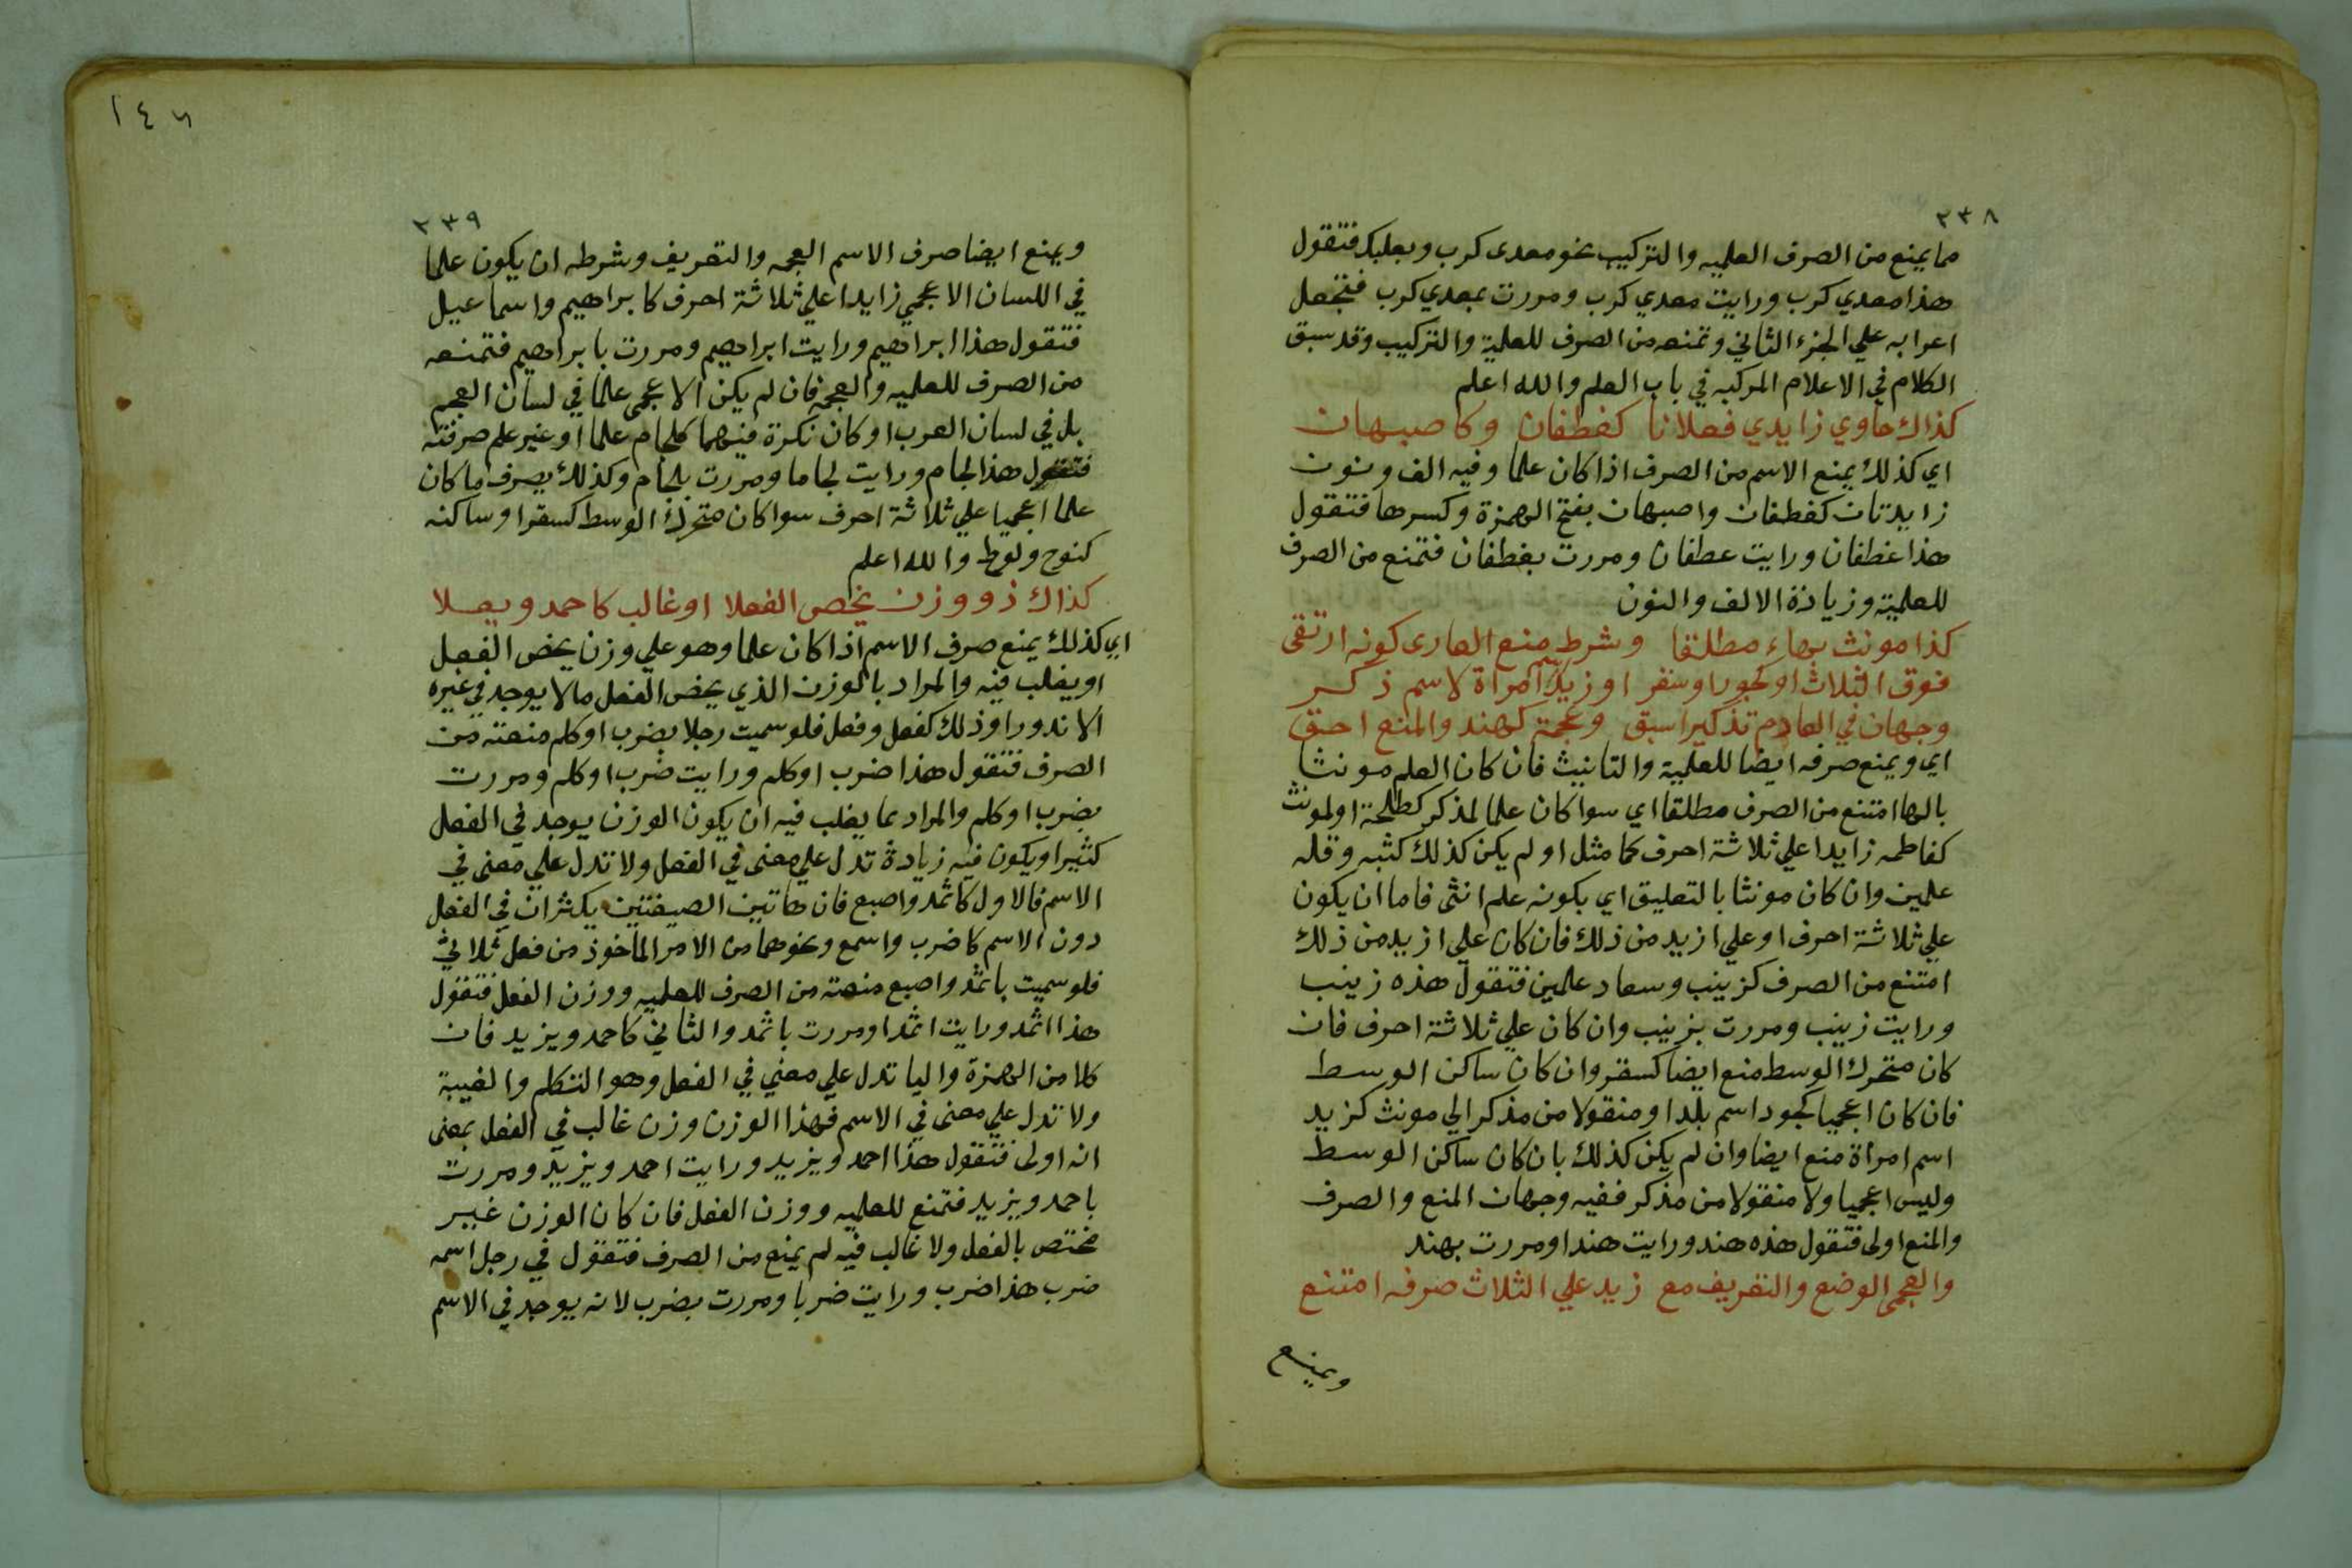 ٢٣٨
مما يمنع من الصرف العلميه والتركيب نحو معدى كرب وبعلبك فتقول
هذا معدي كرب ورايت معدي كرب ومررت بمعدي كرب فتجعل
اعرابه علي الجزء الثاني وتمنعه من الصرف للعلمية والتركيب وقد سبق
الكلام في الاعلام المركبه في باب العلم والله اعلم
كذاك حاوي زايدي فعلانا كغطفان وكاصبهان
اي كذلك يمنع الاسم من الصرف اذا كان علما وفيه الف ونون
زايدتان كغطفان واصبهان بفتح الهمزة وكسرها فتقول
هذا غطفان ورايت عطفان ومررت بغطفان فتمنع من الصرف
للعلمية وزيادة الالف والنون
كذا مونث بهاء مطلقا وشرط منع العارى كونه ارتقى
فوق الثلاث او كجور او سقر او زيد اسم امراة لا سم ذكر
وجهان في العادم تذكيرا سبق وعجمة كهند والمنع احق
اي ويمنع صرفه ايضا للعلمية والتانيث فان كان العلم مونثا
بالها امتنع من الصرف مطلقا اي سوا كان علما لمذكر كطلحة او لمونث
كفاطمه زايدا علي ثلاثة احرف كما مثل او لم يكن كذلك كثبه وقله
علمين وان كان مونثا بالتعليق اي بكونه علم انثى فاما ان يكون
علي ثلاثة احرف او علي ازيد من ذلك فان كان علي ازيد من ذلك
امتنع من الصرف كزينب وسعاد علمين فتقول هذه زينب
ورايت زينب ومررت بزينب وان كان علي ثلاثة احرف فان
كان متحرك الوسط منع ايضا كسقر وان كان ساكن الوسط
فان كان اعجميا كجور اسم بلد او منقولا من مذكر الي مونث كزيد
اسم امراة منع ايضا وان لم يكن كذلك بان كان ساكن الوسط
وليس اعجميا ولا منقولا من مذكر ففيه وجهان المنع والصرف
والمنع اولى فتقول هذه هند ورايت هندا ومررت بهند
والعجمى الوضع والتعريف مع زيد علي الثلاث صرفه امتنع
ويمنع
١٤٦
٢٣٩
ويمنع ايضا صرف الاسم العجمه والتعريف وشرطه ان يكون علما
في اللسان الاعجمي زايدا علي ثلاثة احرف كابراهيم واسماعيل
فتقول هذا ابراهيم ورايت ابراهيم ومررت بابراهيم فتمنعه
من الصرف للعلميه والعجمة فان لم يكن الاعجمى علما في لسان العجم
بل في لسان العرب او كان نكرة فيهما كلجام علما او غير علم صرفته
فتقول هذا لجام ورايت لجاما ومررت بلجام وكذلك يصرف ما كان
علما اعجميا علي ثلاثة احرف سوا كان متحرك الوسط كسقر او ساكنه
كنوح ولوط والله اعلم
كذاك ذو وزن يخص الفعلا او غالب كاحمد ويعلا
اي كذلك يمنع صرف الاسم اذا كان علما وهو علي وزن يخص الفعل
او يغلب فيه والمراد بالوزن الذي يخص الفعل ما لا يوجد في غيره
الا ندورا وذلك كفعل وفعل فلو سميت رجلا بضرب او كلم منعته من
الصرف فتقول هذا ضرب او كلم ورايت ضرب او كلم ومررت
بضرب او كلم والمراد بما يغلب فيه ان يكون الوزن يوجد في الفعل
كثيرا ويكون فيه زيادة تدل علي معنى في الفعل ولا تدل علي معنى في
الاسم فالاول كاثمد واصبع فان هاتين الصيغتين يكثران في الفعل
دون الاسم كاضرب واسمع ونحوهما من الامر الماخوذ من فعل ثلاثي
فلو سميت باثمد واصبع منعته من الصرف للعلميه ووزن الفعل فتقول
هذا اثمد ورايت اثمدا ومررت باثمد والثاني كاحمد ويزيد فان
كلا من الهمزة واليا تدل علي معني في الفعل وهو التكلم والغيبة
ولا تدل علي معنى في الاسم فهذا الوزن وزن غالب في الفعل بمعنى
انه اولى فتقول هذا احمد ويزيد ورايت احمد ويزيد ومررت
باحمد ويزيد فتمنع للعلميه ووزن الفعل فان كان الوزن غير
مختص بالفعل ولا غالب فيه لم يمنع من الصرف فتقول في رجل اسمه
ضرب هذا ضرب ورايت ضربا ومررت بضرب لانه يوجد في الاسم